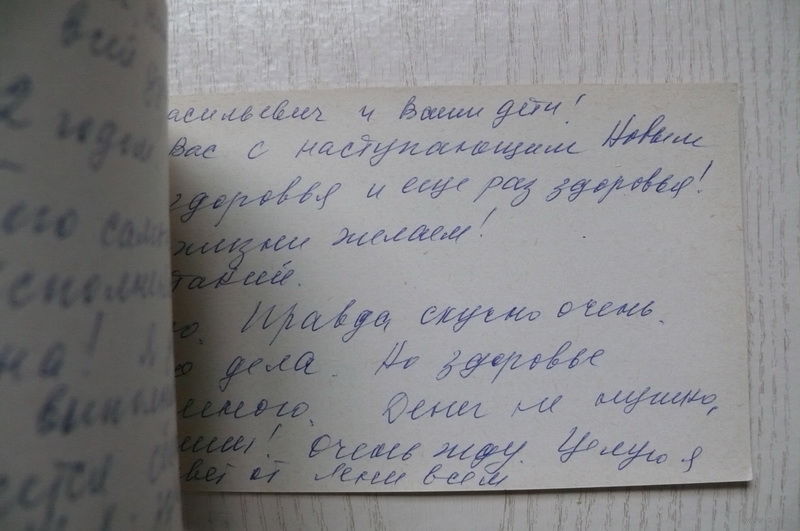 всей
2 годом
его само
сполне
на!
выполн
ется
асильевич и Ваши дети!
Вас с наступающим Новым
здоровья и еще раз здоровья!
жизни желаем!
таний.
го. Правда скучно очень.
о дела. Но здоровье
много. Денег не нужно,
ши! Очень жду. Целую я
вет от Лени всем